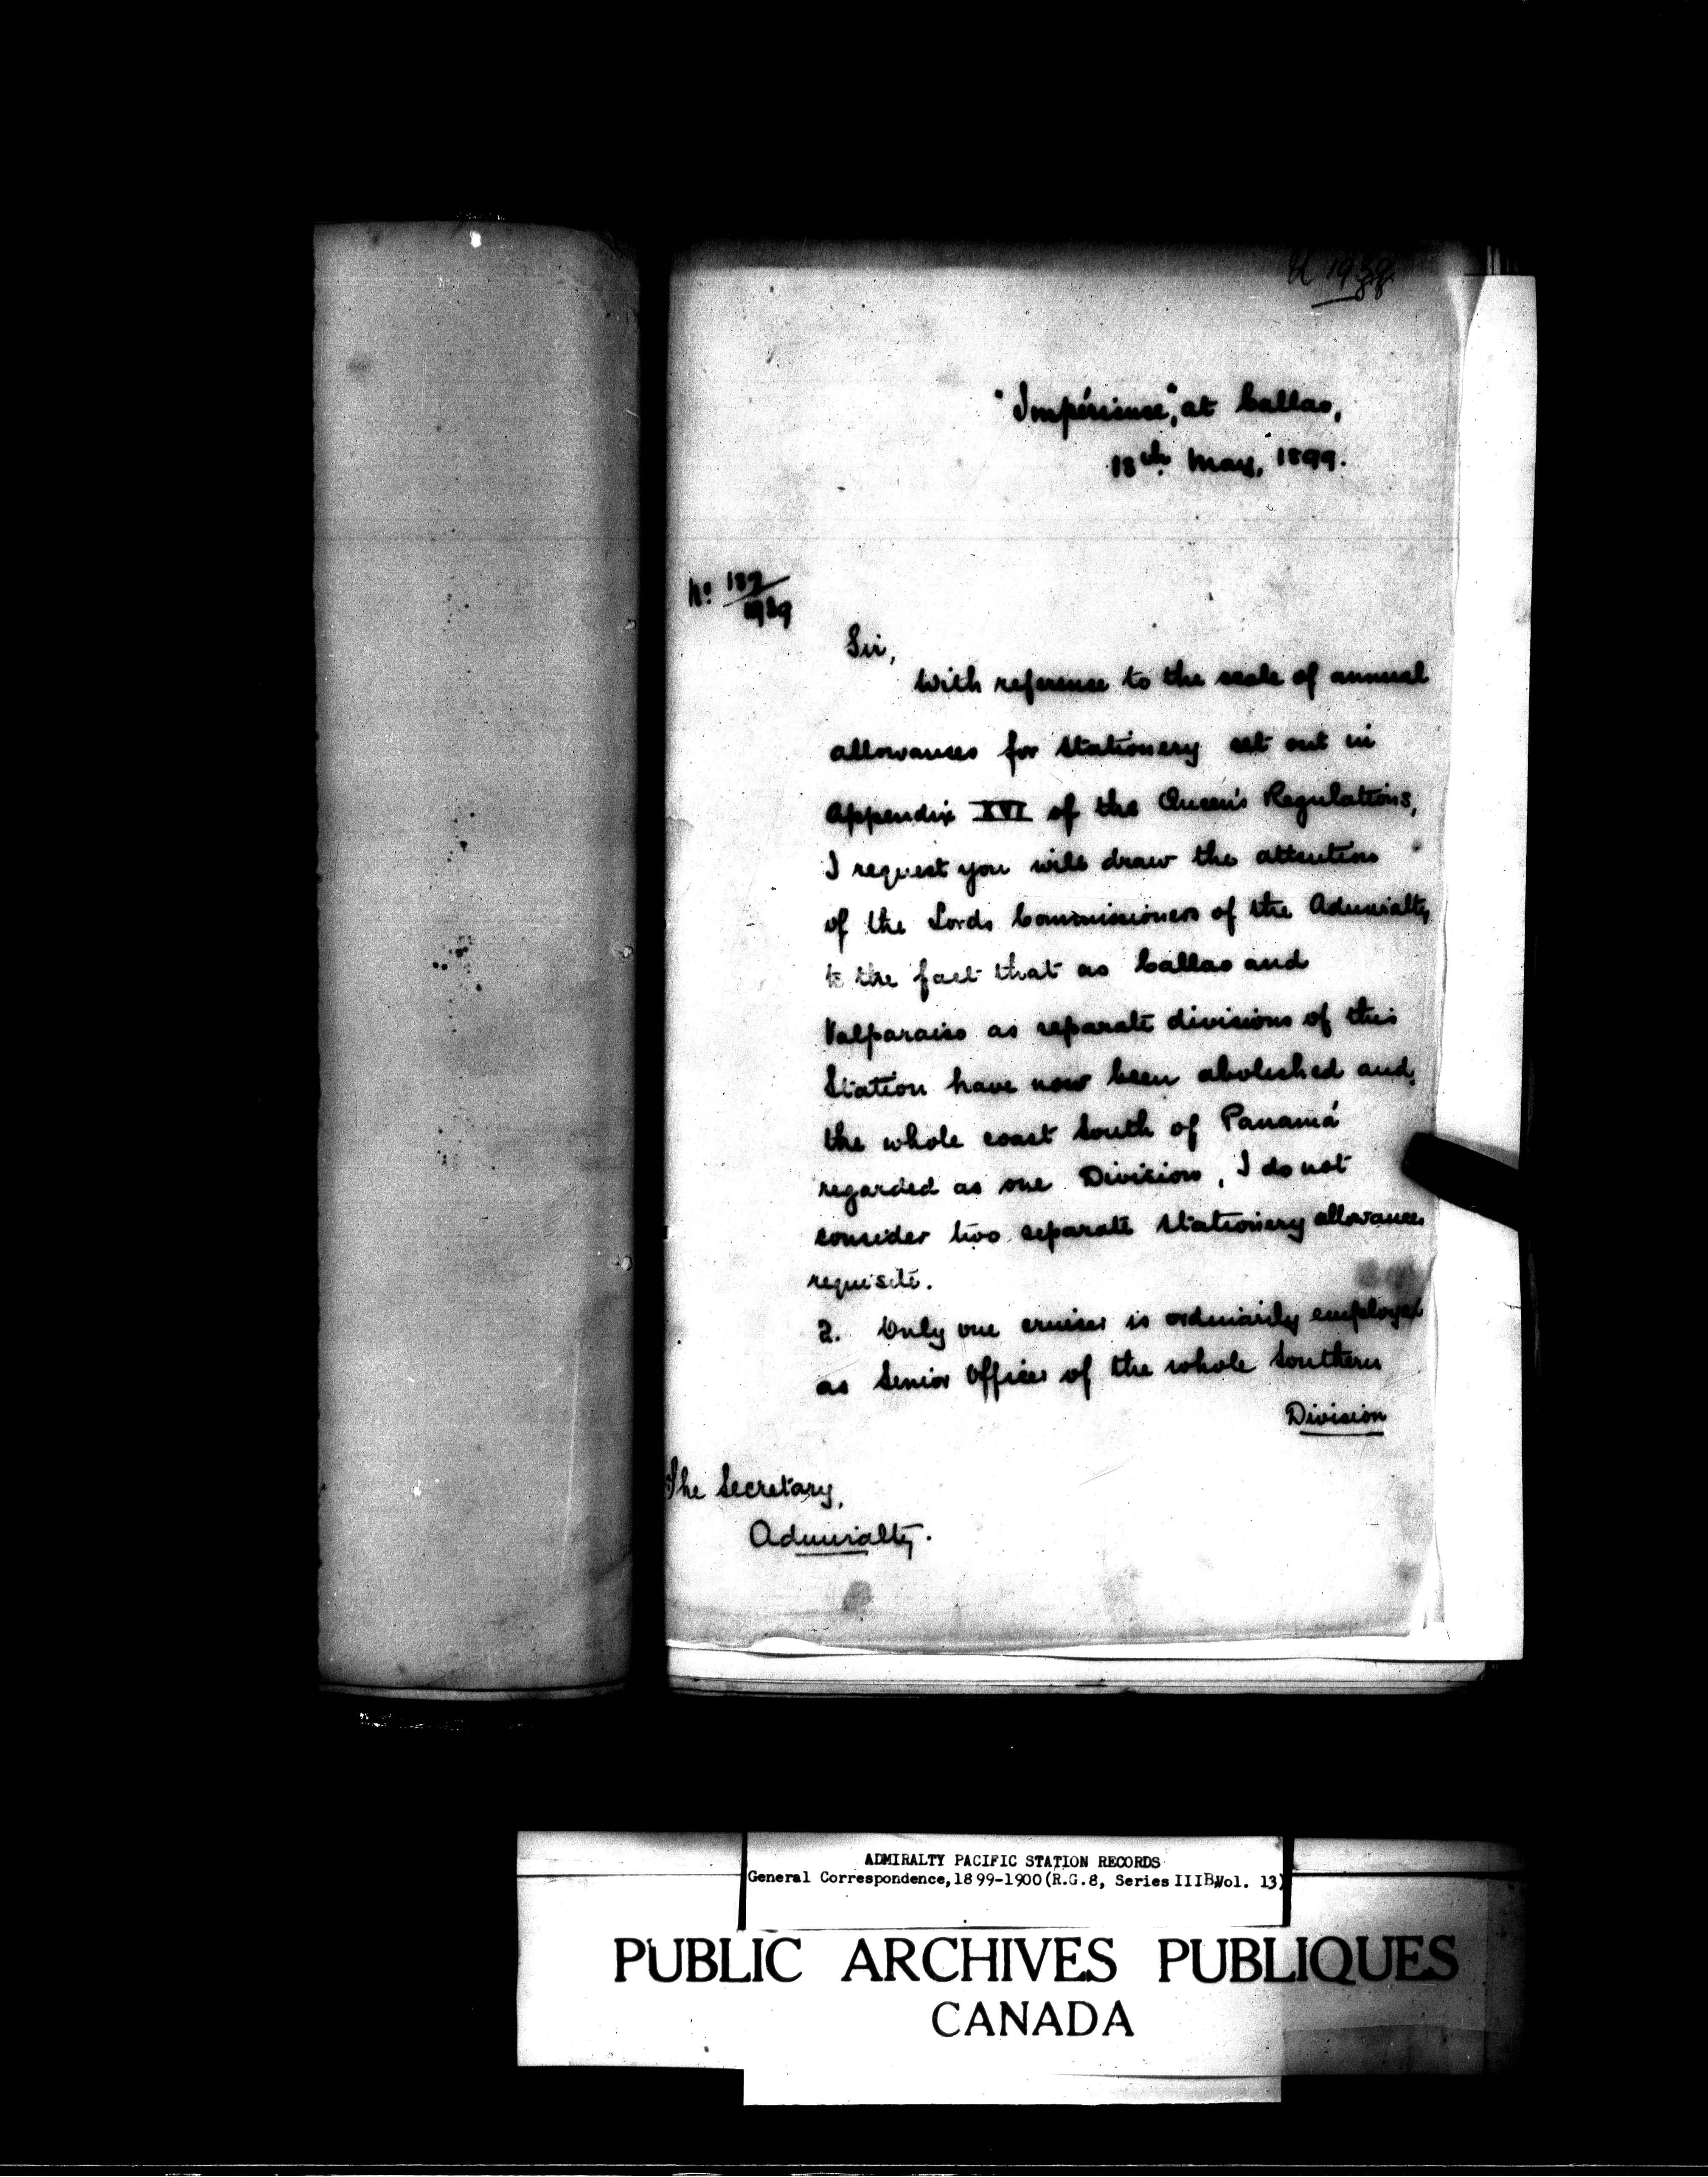 "Impérieuse", at Callao,
18th May, 1899.
No. 189/1939
Sir,
With reference to the scale of annual
allowances for Stationery set out in
Appendix XVI of the Queen's Regulations,
I request you will draw the attention
of the Lords Commissioners of the Admiralty
to the fact that as Callao and
Valparaiso as separate divisions of this
Station have now been abolished and
the whole coast South of Panamá
regarded as one Division, I do not
consider two separate Stationery allowances
requisite.
2. Only one cruiser is ordinarily employed
as Senior Officer of the whole Southern
Division
The Secretary,
Admiralty.
ADMIRALTY PACIFIC STATION RECORDS
General Correspondence, 1899-1900 (R.G.8, Series IIIB, Vol. 13)
PUBLIC ARCHIVES PUBLIQUES
CANADA